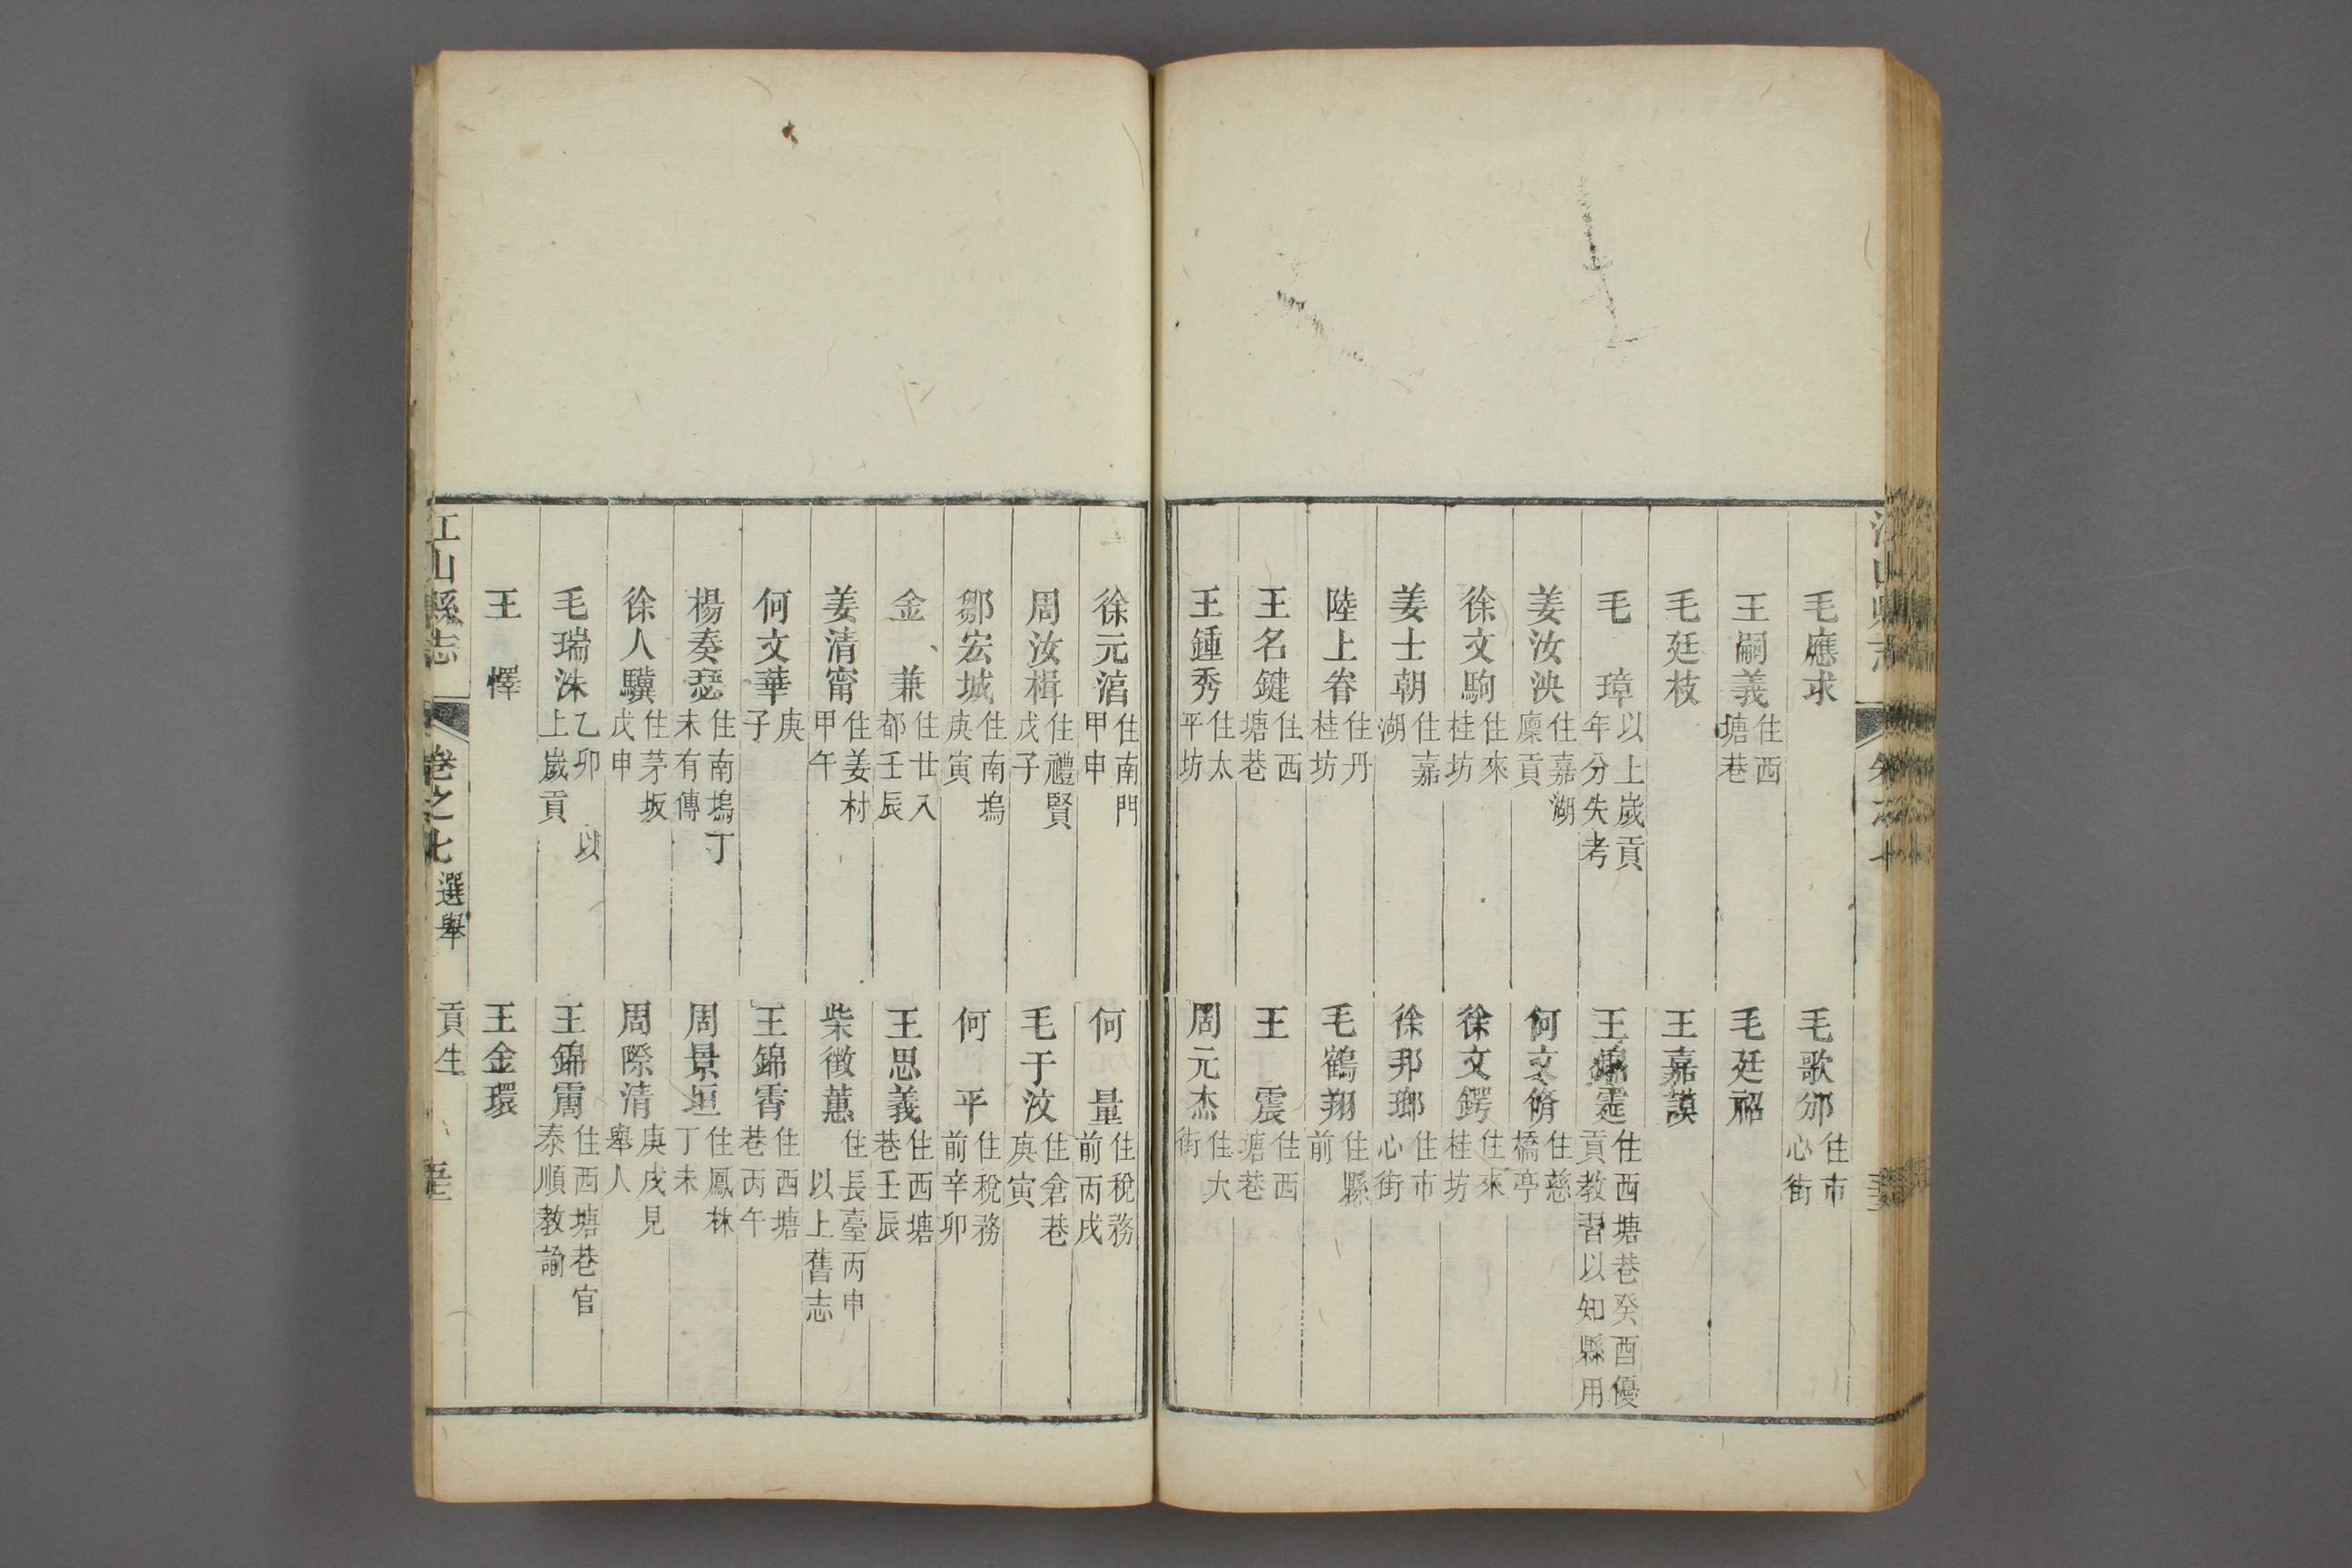 毛應求
毛歌邠住市心街
王嗣義住西塘巷
毛廷祒
毛廷枝
王嘉謨
毛 璋以上歲貢年分失考
王錦霆住西塘巷癸酉優貢教習以知縣用
姜汝泱住嘉湖廩貢
何文脩住慈橋亭
徐文駒住來桂坊
徐文鍔住來桂坊
姜士朝住嘉湖
徐邦瑯住市心街
陸上眷住丹桂坊
毛鶴翔住縣前
王名鍵住西塘巷
王 震住西塘巷
王鍾秀住太平坊
周元杰住大街
徐元㵎住南門甲申
何 量住稅務前丙戌
周汝楫住禮賢戊子
毛于汶住倉巷庚寅
鄒宏城住南塢庚寅
何 平住稅務前辛卯
金 兼住廿八都壬辰
王思義住西塘巷壬辰
姜清甯住姜村甲午
柴徵蕙住長臺丙申以上舊志
何文華庚子
王錦霄住西塘巷丙午
楊奏瑟住南塢丁未有傳
周景垣住鳳林丁未
徐人驥住茅坂戊申
周際清庚戌見舉人
毛瑞洙乙卯 以上歲貢
王錦霱住西塘巷官泰順教諭
王 懌
王金環
江山縣志 卷之七 選舉 貢生